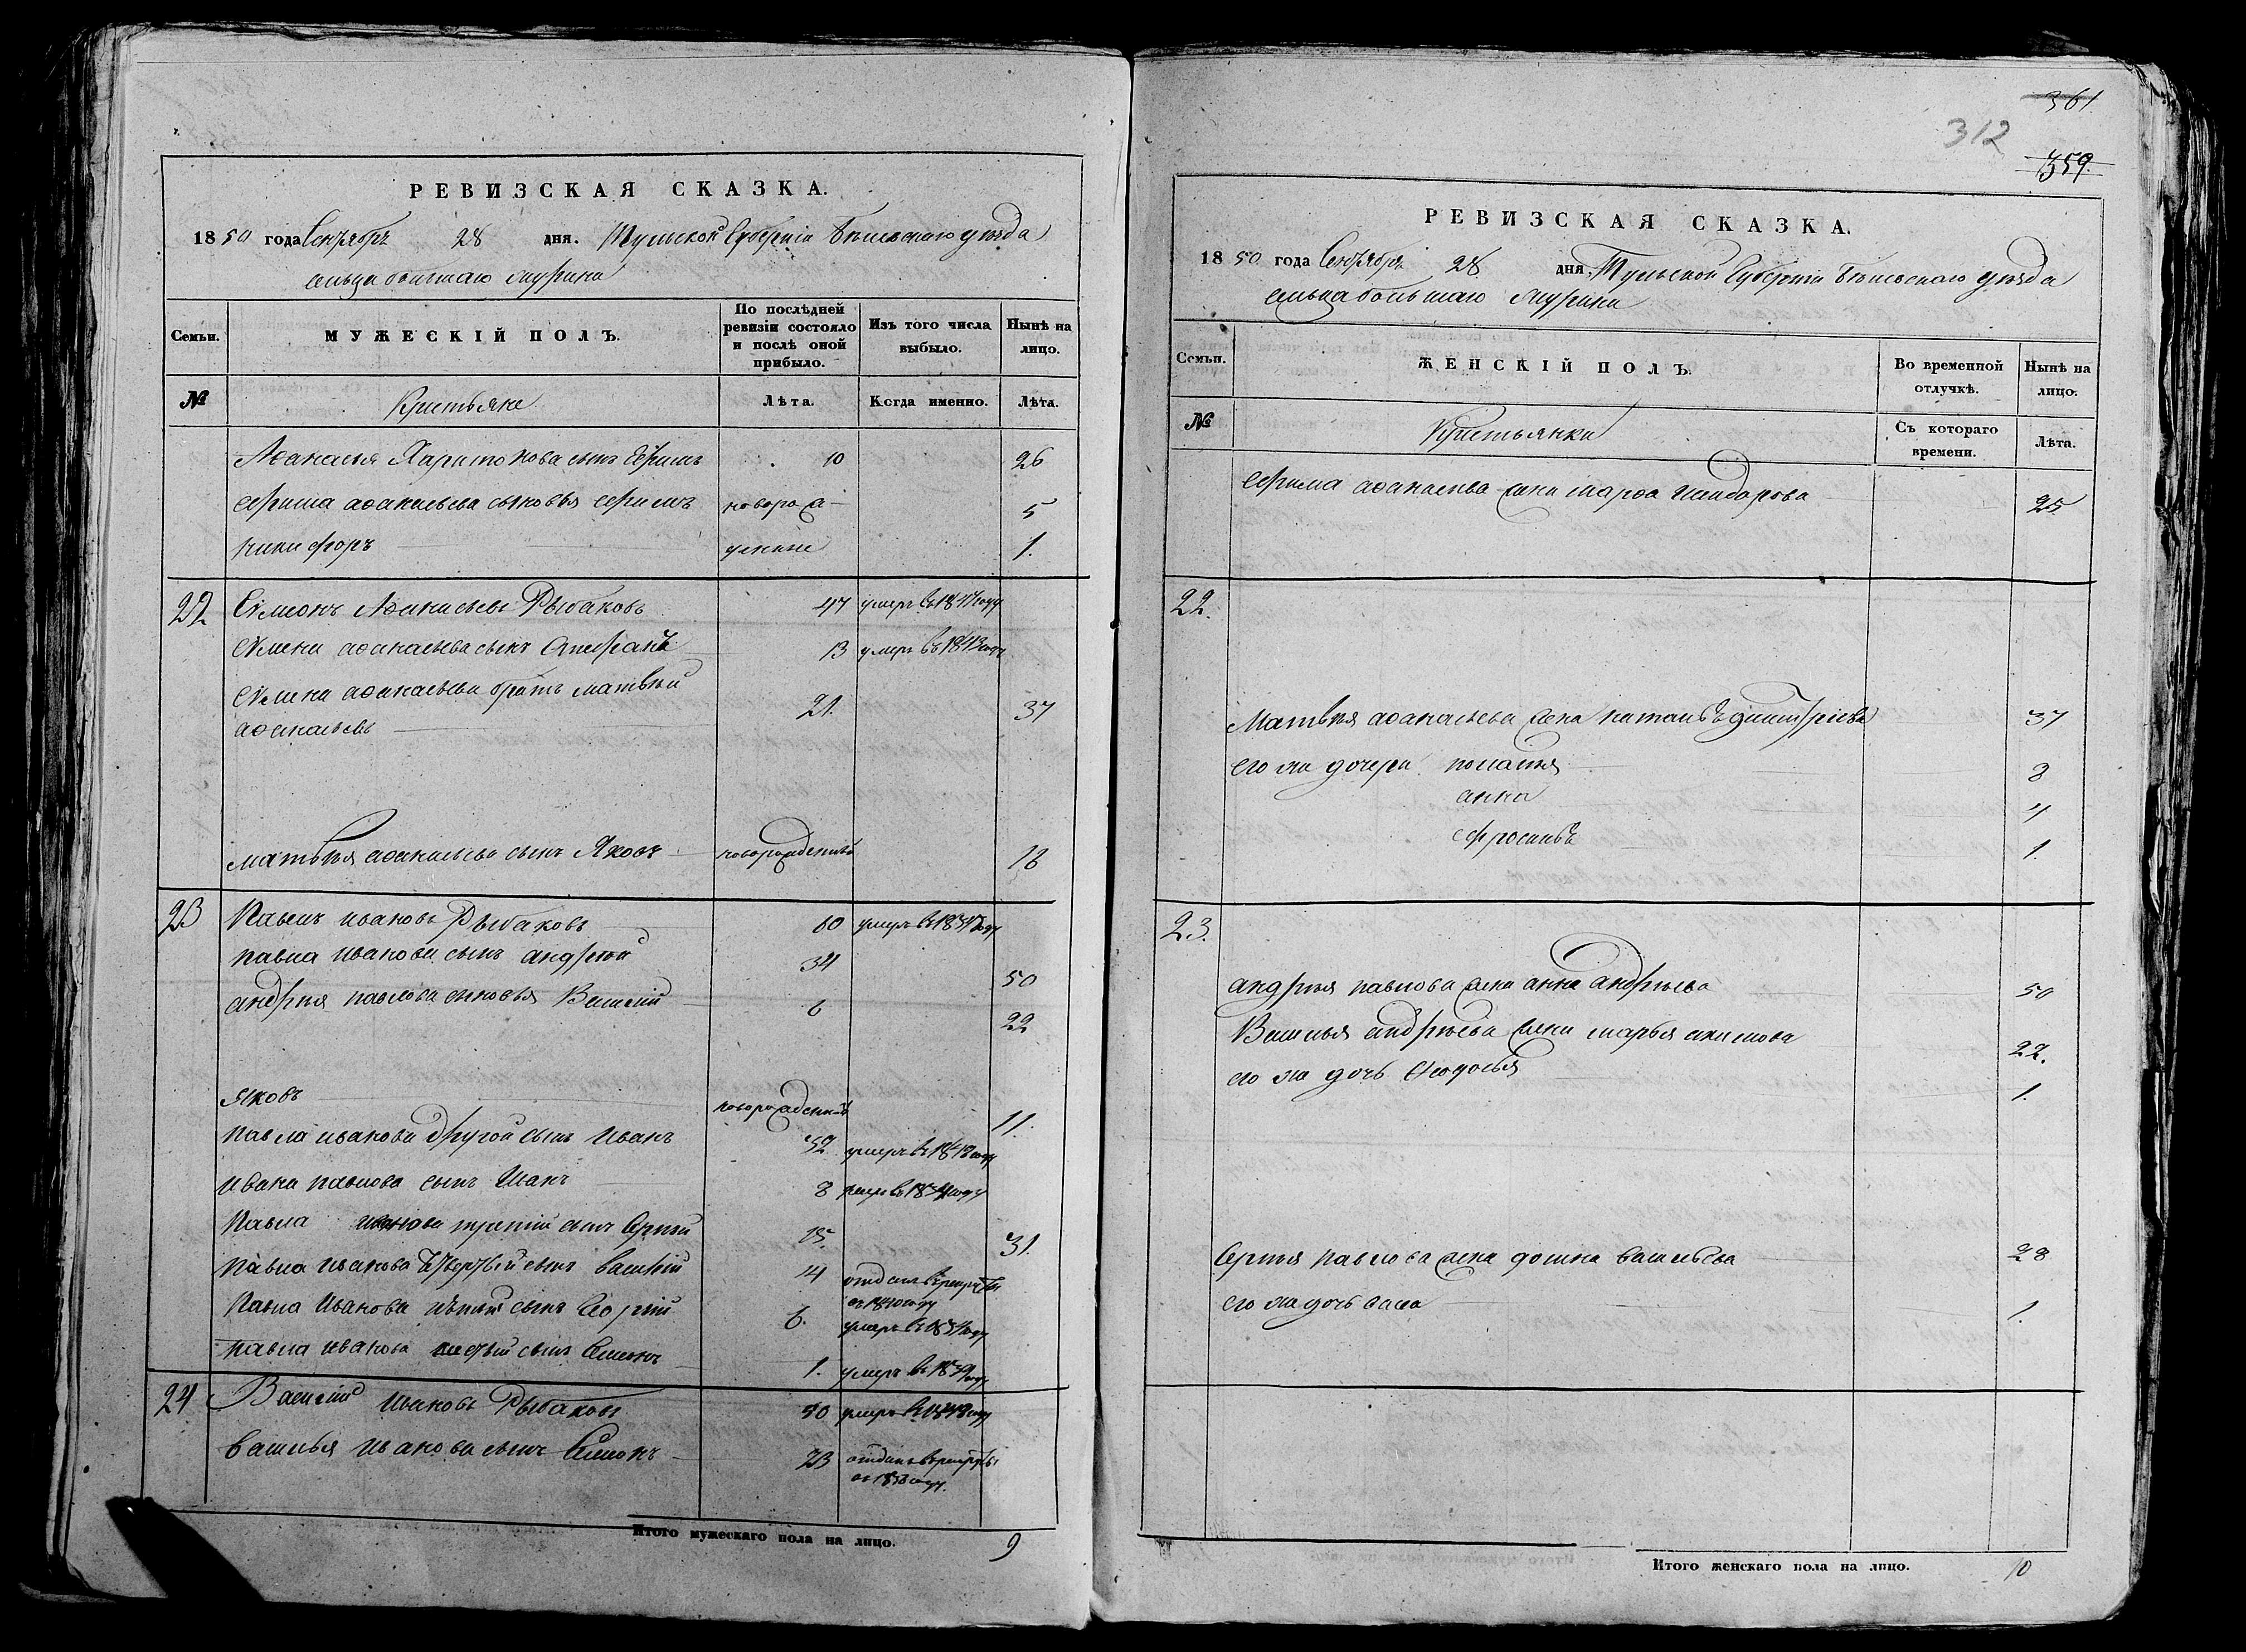 РЕВИЗСКАЯ СКАЗКА.
1850 года Сентября 28 дня. Тульской Губерніи Бѣлевскаго уѣзда
сельца большаго
Семьи. МУЖЕСКІЙ ПОЛЪ. По послѣдней ревизіи состояло и послѣ оной прибыло. Изъ того числа выбыло. Нынѣ на лицо.
№ Крестьяне Лѣта. Когда именно. Лѣта.
Аѳанасья Харитонова сынъ Ефимъ 10 26
Ефима аѳанасьева сыновья новорож- 5
никифоръ денные 1.
22 Симіонъ Аѳанасьевъ Рыбаковъ 47 умеръ въ
аѳанасьева сынъ 13 умеръ въ 1843 году
аѳанасьева братъ матвѣй 21. 37
аѳанасьевъ
матвѣя аѳанасьева сынъ Яковъ новорожденный
23 Павелъ ивановъ Рыбаковъ 60 умеръ въ
павла иванова сынъ андрей 34 50
андрея павлова сыновья Василій 6 22
яковъ новорожденный 11.
павла иванова другой сынъ иванъ 32 умеръ въ
ивана павлова сынъ 8
Павла иванова третій сынъ Сергѣй 15. 31.
павла иванова четвертый сынъ василій 14 отданъ въ рекруты
въ 1840 году
Павла Иванова пятый сынъ 6. умеръ въ
павла иванова шестый сынъ Симіонъ 1. умеръ въ
24 Василій Ивановъ Рыбаковъ 50 умеръ въ
василья иванова сынъ Симіонъ 23 отданъ въ рекруты
Итого мужескаго пола на лицо. 9
361.
312
359.
РЕВИЗСКАЯ СКАЗКА.
1850 года Сентября 28 дня. Тульской Губерніи Бѣлевскаго уѣзда
сельца большаго
Семьи. ЖЕНСКІЙ ПОЛЪ. Во временной отлучкѣ. Нынѣ на лицо.
№ Крестьянки Съ котораго времени. Лѣта.
Ефима аѳанасьева жена марѳа 25
22.
Матвѣя аѳанасьева жена дмитріева 37
его же дочери 8
анна 4
1.
23.
андрея павлова жена анна андреева 50
Василья андреева жена марья акимова 22.
его же дочь Ѳеодосья 1.
Сергѣя павлова жена домна васильева 28
его же дочь 1.
Итого женскаго пола на лицо. 10